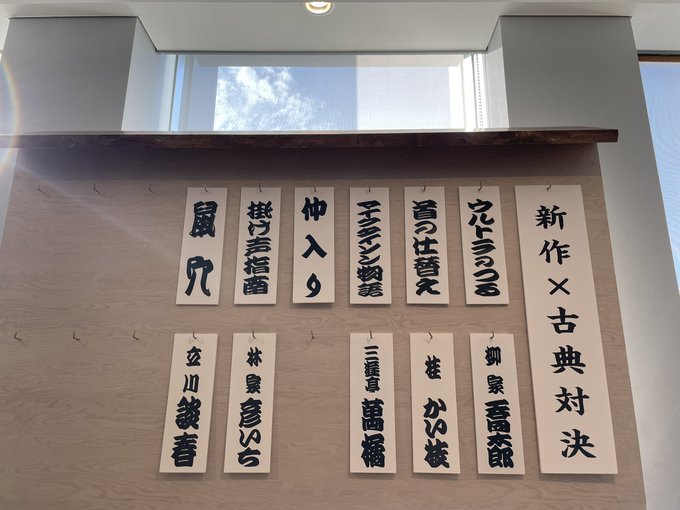 新作×古典対決
ウルトラのつる
柳家 喬太郎
首の仕替え
桂 かい枝
マイクタイソン物語
三遊亭 萬橘
仲入り
掛け声指南
林家 彦いち
鼠穴
立川 談春